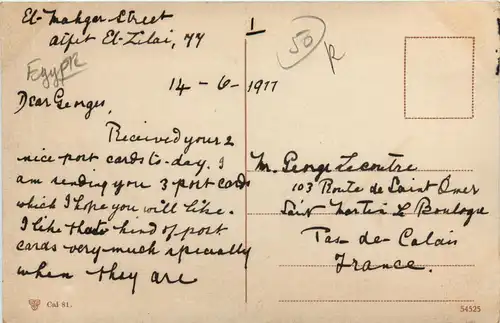 El-Mahgar Street
El-Zilai, 77
Egypte
1
50
R
14 - 6 - 1911
Dear Georges,
Received your 2
nice post cards to-day. I
am sending you 3 post cards
which I hope you will like.
I like that kind of post
cards very much specially
when they are
M. George Lecoutre
103 Route de Saint Omer
Saint Martin L Boulogne
Pas-de-Calais
France.
Cad 81.
54525